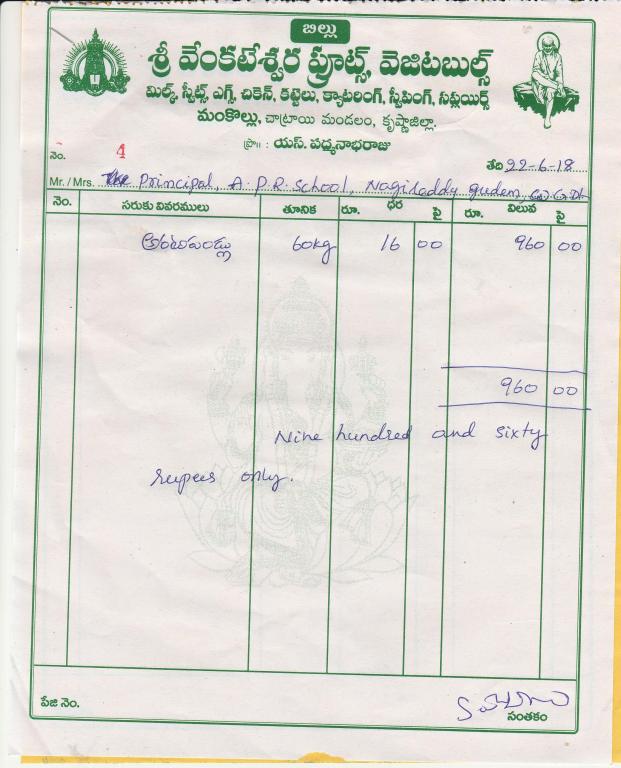 బిల్లు
శ్రీ వేంకటేశ్వర ఫ్రూట్స్, వెజిటబుల్స్
మిల్క్, స్వీట్స్, ఎగ్స్, చికెన్, కట్టెలు, క్యాటరింగ్, స్వీపింగ్, సప్లయిర్స్
మంకొల్లు, చాట్రాయి మండలం, కృష్ణాజిల్లా.
ప్రొ॥ : యస్. పద్మనాభరాజు
నెం. 4
తేది 22-6-18
Mr. / Mrs. The Principal, A.P.R. School, Nagireddy gudem
నెం. సరుకు వివరములు తూనిక రూ. ధర పై రూ. విలువ పై
అరటిపండ్లు 60kg 16 00 960 00
960 00
Nine hundred and sixty
rupees only.
పేజి నెం.
సంతకం